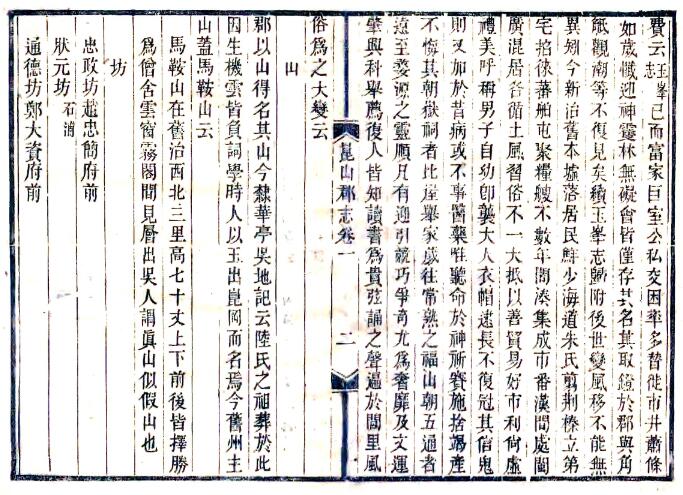 費云玉峯志已而富家巨室公私交困率多替徙市井蕭條
如歲懺迎神靈林無礙會皆僅存其名莫取證於郡與角
觝觀南等不復見矣續玉峯志歸附後世變風移不能無
異矧今新治舊本墟落居民鮮少海道朱氏剪荆榛立第
宅招徠蕃舶屯聚糧艘不數年間湊集成市番漢間處閩
廣混居各循土風習俗不一大抵以善貿易好市利尚虛
禮美呼稱男子自幼卽襲大人衣帽逮長不復冠其信鬼
則又加於昔病或不事醫藥惟聽命於神祈賽施捨竭產
不悔其朝嶽祠者比屋舉家歲往常熟之福山朝五通者
遠至婺源之靈順凡有迎引競巧爭奇尤爲奢靡及文運
肇興科舉薦復人皆知讀書爲貴弦誦之聲遍於閭里風
崑山郡志卷一 二
俗爲之大變云
山
郡以山得名其山今隸華亭吳地記云陸氏之祖葬於此
因生機雲皆負詞學時人以玉出崑岡而名焉今舊州主
山蓋馬鞍山云
馬鞍山在舊治西北三里高七十丈上下前後皆擇勝
爲僧舍雲窗霧閣間見層出吳人謂眞山似假山也
坊
忠政坊趙忠簡府前
狀元坊石浦
通德坊鄭大資府前